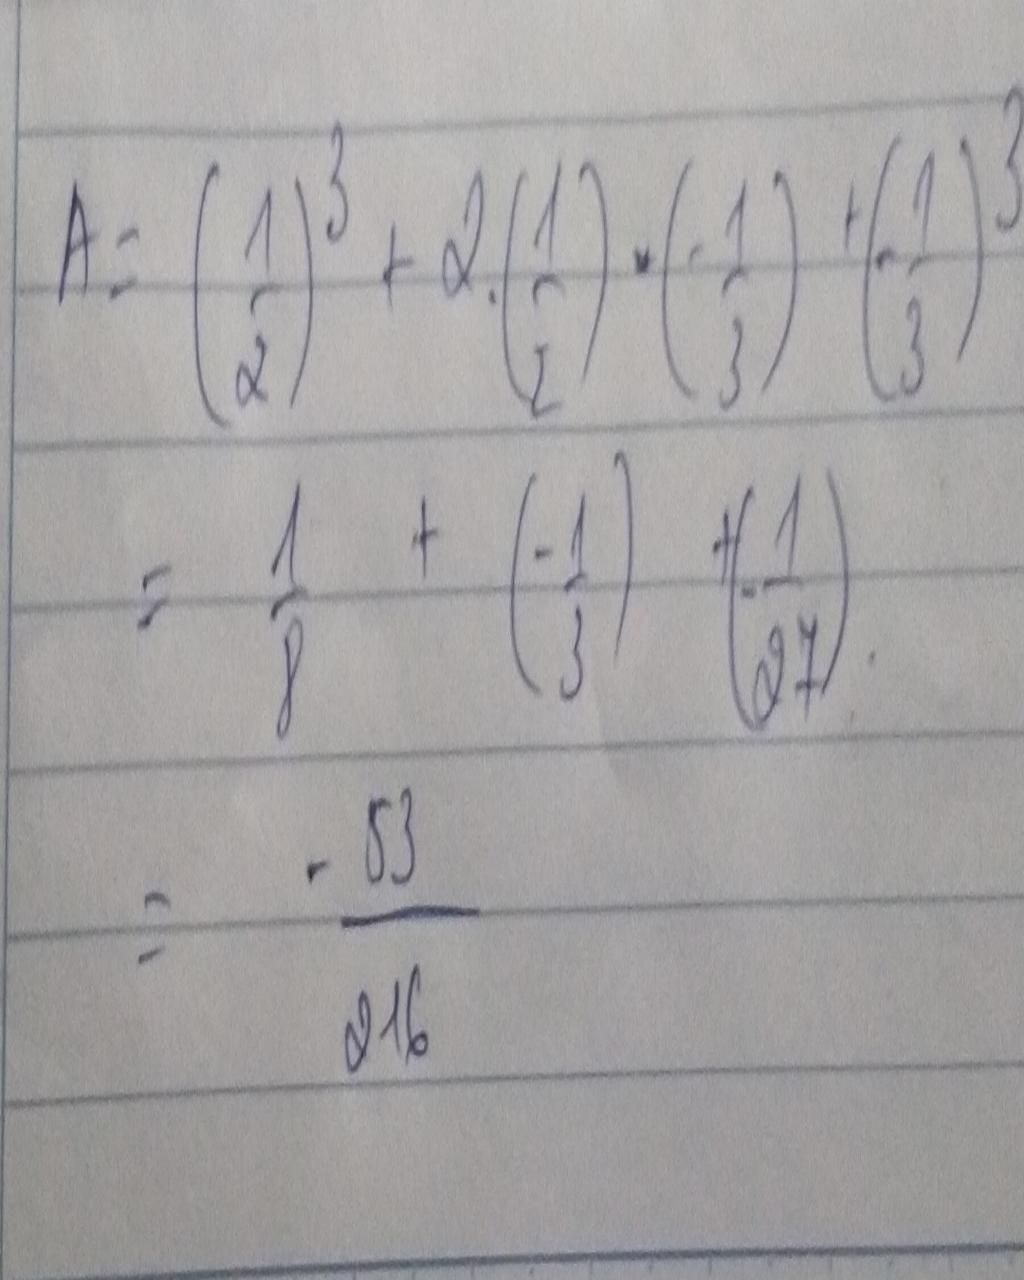 A = (1/2)^3 + 2.(1/2) . (-1/3) + (-1/3)^3
= 1/8 + (-1/3) + (-1/27).
= -53/216